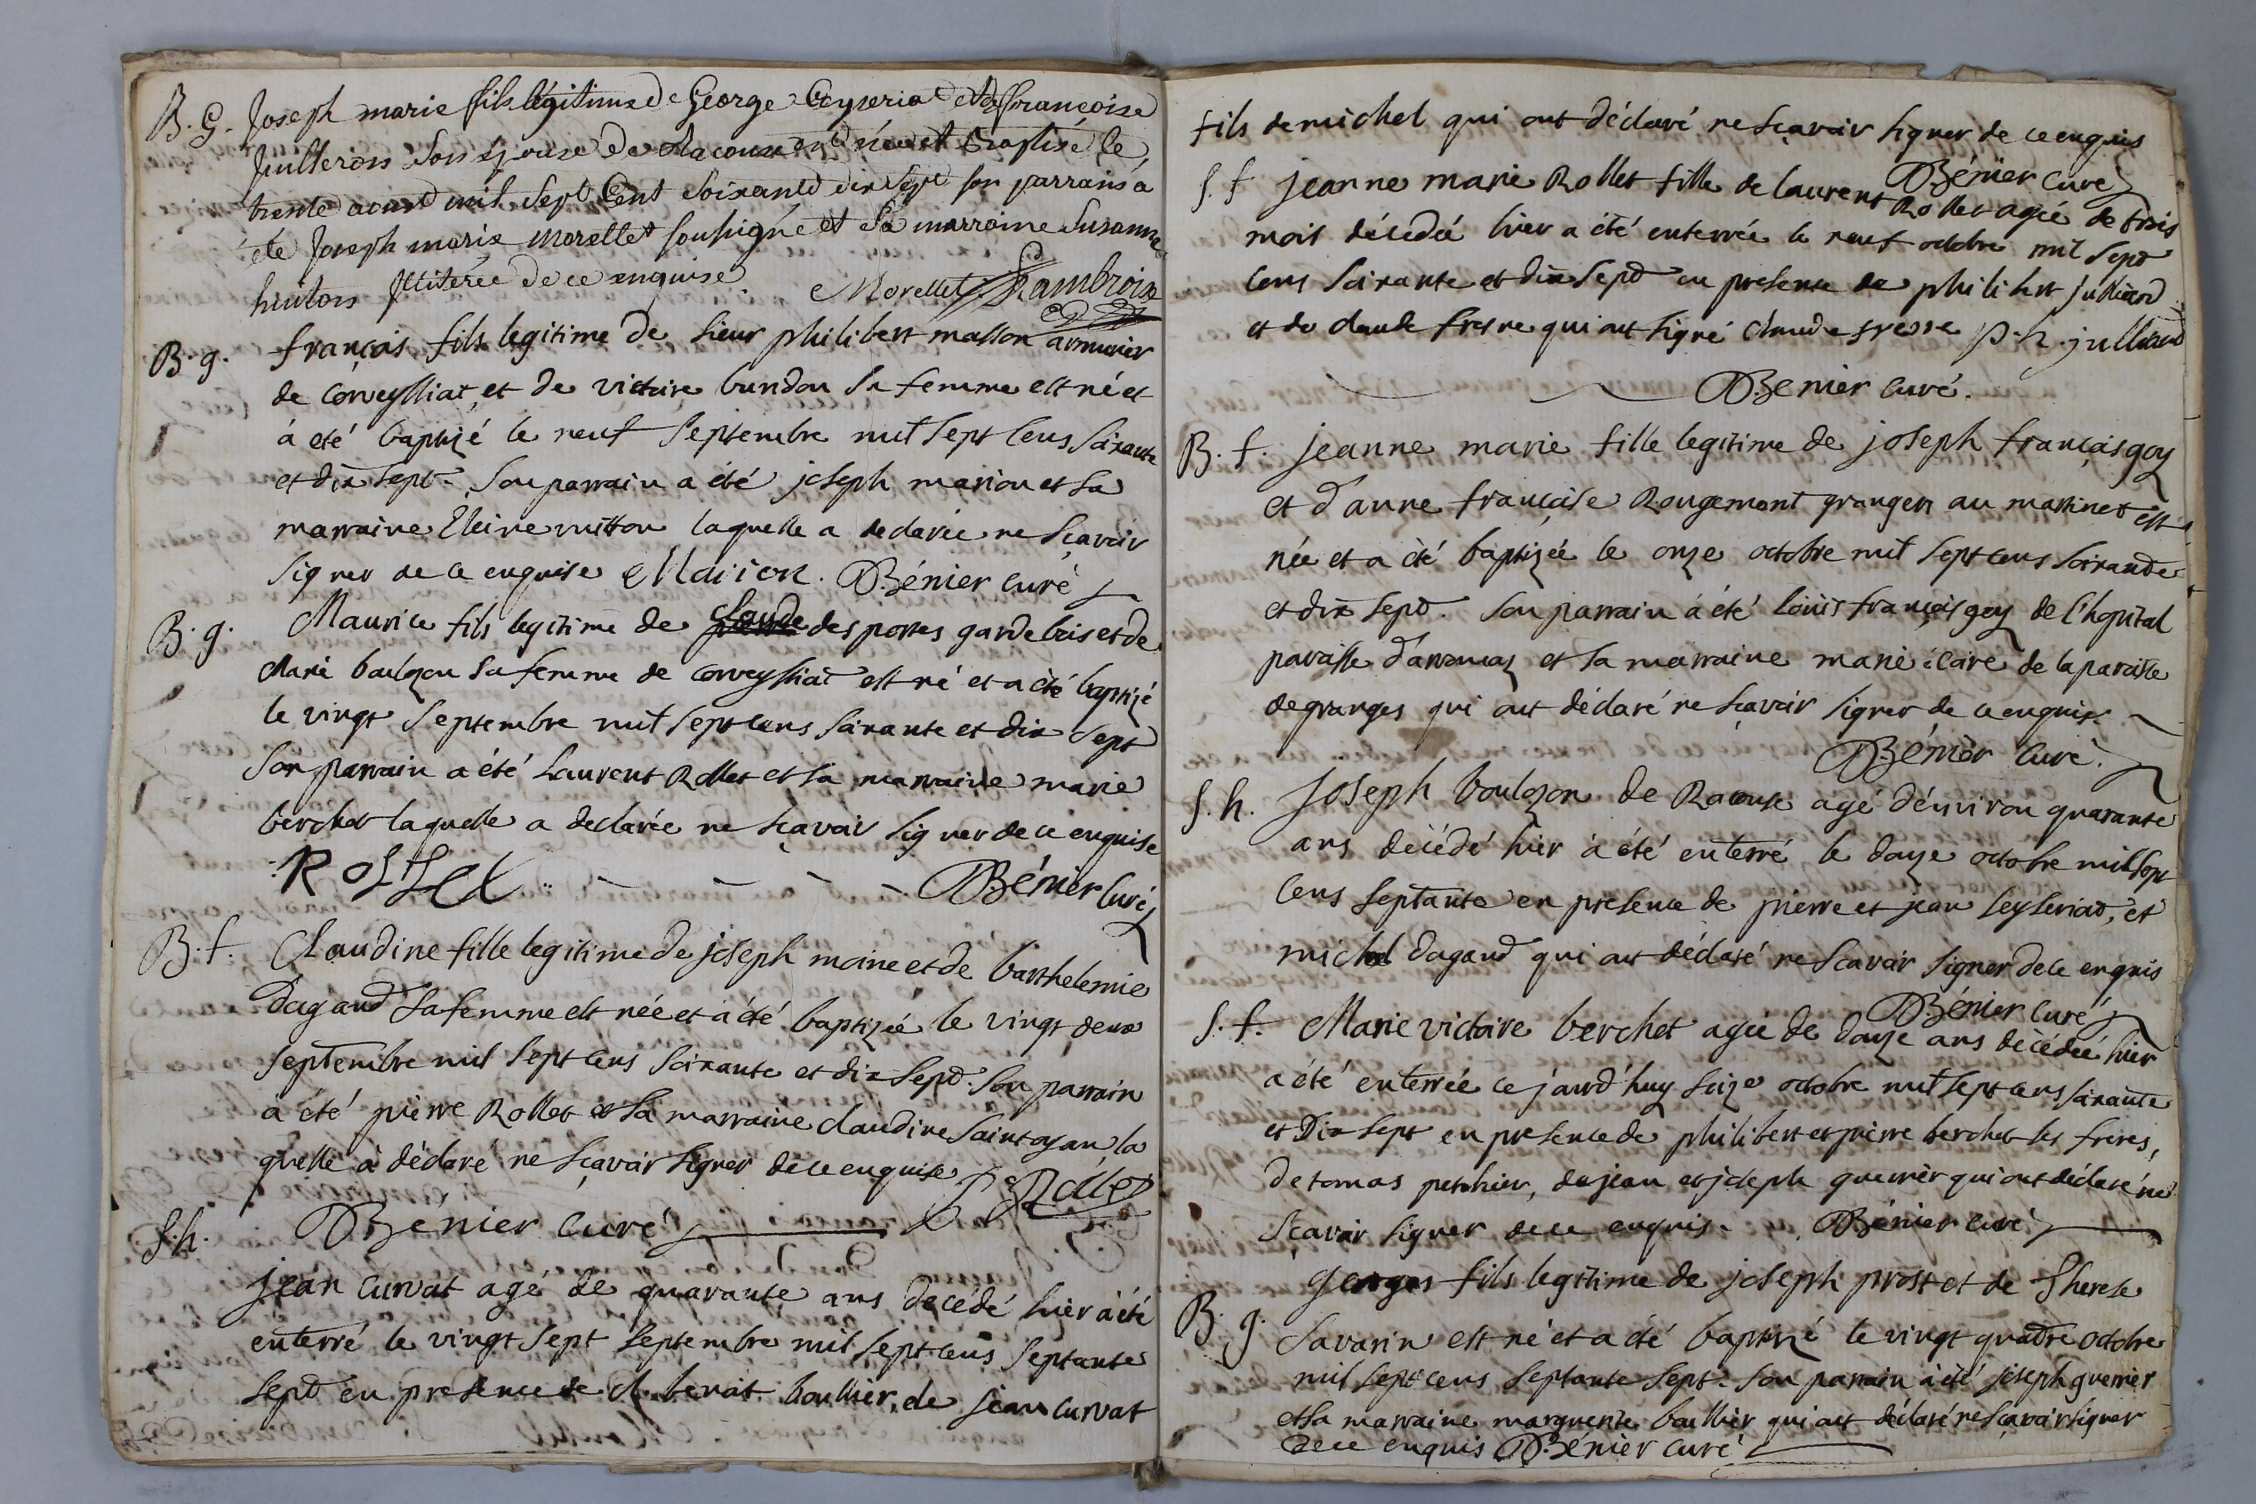 B. G. Joseph marie fils légitime de George Ceyseriat et de françoise
Julleron son epouse de Racouse est né et Baptisé le
trente aoust mil Sept Cent Soixante dix Sept son parrain a
été Joseph marie Morellet soussigné et sa marraine Susanne
hiutors illiterée de ce enquise. Morellet Rambroix
B. g. françois fils legitime de sieur philibert masson armurier
de Corveyssiat et de victoire bundon sa femme est né et
à eté baptizé le neuf Septembre mil Sept Cens Soixante
et dix Sept. Son parrain a été joseph marion et sa
marraine Eleine mitton laquelle a declarée ne Sçavoir
signer de ce enquise Marion. Bénier Curé
B. g. Maurice fils legitime de Claude desportes garde bois et de
Marie boulozon sa femme de Corveyssiat est né et a été baptizé
le vingt Septembre mil Sept Cens Soixante et dix Sept
Son parrain a été Laurent Rollet et sa marraine marie
berchet laquelle a declarée ne sçavoir signer de ce enquise
Rollet Bénier Curé
B. f. Claudine fille legitime de joseph moine et de barthelemie
Dagand sa femme est née et à été baptizée le vingt deux
Septembre mil Sept Cens Soixante et dix Sept. Son parrain
à été pierre Rollet et sa marraine Claudine Saintoyan la
quelle à déclaré ne sçavoir signer de ce enquise P Rollet
S. h. Bénier Curé
jean Curvat agé de quarante ans decédé hier à été
enterré le vingt Sept Septembre mil Sept Cens Septante
Sept en presence de Cl. benoit boullier, de jean Curvat
fils de michel qui ont déclaré ne sçavoir signer de ce enquis
Bénier Curé
S. f jeanne marie Rollet fille de laurent Rollet agée de trois
mois décedée hier a été enterrée le neuf octobre mil Sept
Cens Soixante et dix Sept en presence de philibert julliard
et de claude fresne qui ont signé Claude fresne p. h. julliard
Benier Curé.
B. f. jeanne marie fille legitime de joseph françois goy
et d'anne françoise Rougemont grangers au martinet est
née et a été baptizée le onze octobre mil Sept Cens Soixante
et dix Sept. Son parrain à été loüis françois goy de l'hopital
paroisse d'arromas et sa marraine marie claire de la paroisse
de granges qui ont déclaré ne sçavoir signer de ce enquis.
Bénier Curé.
S. h. Joseph boulozon de Racouse agé d'environ quarante
ans décédé hier à été enterré le douze octobre mil Sept
Cens Septante en presence de pierre et jean Seyseriat, et
michel Dagand qui ont déclaré ne scavoir signer de ce enquis
Bénier Curé
S. f. Marie victoire berchet agée de douze ans décedée hier
a été enterrée ce jourd'huy Seize octobre mil Sept Cens Soixante
et Dix Sept en presence de philibert et pierre berchet ses freres,
de tomas perchier, de jean et joseph guerrier qui ont déclaré ne
Sçavoir signer de ce enquis. Bénier Curé
B. g. Georges fils legitime de joseph prost et de Therese
Savarin est né et a été baptizé le vingt quatre octobre
mil Sept Cens Septante Sept. Son parrain à été joseph guerrier
et sa marraine marguerite boullier qui ont déclaré ne sçavoir signer
de ce enquis Bénier Curé